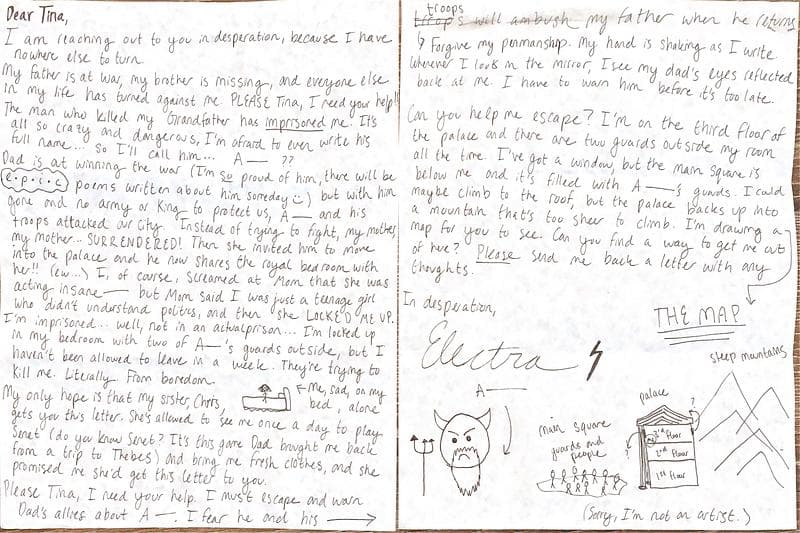 Dear Tina,
I am reaching out to you in desperation, because I have
nowhere else to turn.
My father is at war, my brother is missing, and everyone else
in my life has turned against me. PLEASE Tina, I need your help!!
The man who killed my Grandfather has imprisoned me. It's
all so crazy and dangerous, I'm afraid to even write his
full name... so I'll call him... A— ??
Dad is at winning the war (I'm so proud of him, there will be
e·p·i·c poems written about him someday :) but with him
gone and no army or King to protect us, A— and his
troops attacked our city. Instead of trying to fight, my mother,
my mother... SURRENDERED! Then she invited him to move
into the palace and he now shares the royal bedroom with
her!! (ew...) I, of course, screamed at Mom that she was
acting insane— but Mom said I was just a teenage girl
who didn't understand politics, and then she LOCKED ME UP.
I'm imprisoned... well, not in an actual prison... I'm locked up
in my bedroom with two of A—'s guards outside, but I
haven't been allowed to leave in a week. They're trying to
kill me. Literally. From boredom.
My only hope is that my sister, Chris,
gets you this letter. She's allowed to see me once a day to play
Senet (do you know Senet? It's this game Dad brought me back
from a trip to Thebes) and bring me fresh clothes, and she
promised me she'd get this letter to you.
Please Tina, I need your help. I must escape and warn
Dad's allies about A—. I fear he and his
← Me, sad, on my
bed, alone
troops
troops will ambush my father when he returns
Forgive my penmanship. My hand is shaking as I write.
Whenever I look in the mirror, I see my dad's eyes reflected
back at me. I have to warn him before it's too late.
Can you help me escape? I'm on the third floor of
the palace and there are two guards outside my room
all the time. I've got a window, but the main square is
below me and it's filled with A—'s guards. I could
maybe climb to the roof, but the palace backs up into
a mountain that's too sheer to climb. I'm drawing a
map for you to see. Can you find a way to get me out
of here? Please send me back a letter with any
thoughts.
In desperation,
Electra
THE MAP
A—
main square
guards and
people
palace
?
?
3rd Floor
2nd Floor
1st Floor
steep mountains
(Sorry, I'm not an artist.)